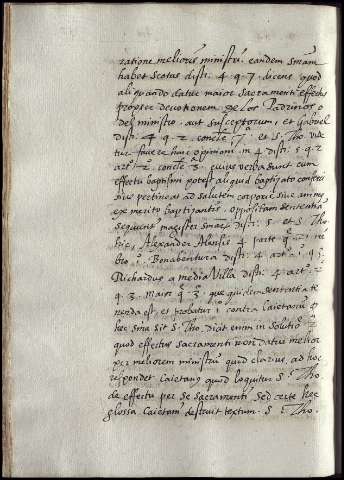 ratione melioris ministri. eandem smam
habet Scotus disti. 4 q. 7. dicens quod
ali quando datur maior Sacramenti effectus
propter devotionem de los Padrinos o
del ministro. aut susceptorum, et Gabriel
disti. 4 q. 2. concl. 7ª. et S. Tho. vide
tur favere huic opinioni in 4 disti. 5 q. 2
artº. 2º. concl. 3ª. cuius verba sunt cum
effectu baptismi potest aliquid baptizato conferri
sive pertineat ad salutem corporis sive animę
ex merito baptizantis. oppositam sententiã
sequitur magister smarũ disti. 5. et S. Tho.
hic, Alexander Alensis 4 parte q.
bro. Bonabentura disti. 4 artº. 1º q. 3.
Richardus a media Villa disti. 4 artº. 2º
q. 3. Maior q. 3ª. que quidem sententia te
nenda est, et probatur 1º contra Caietanũ q
hec sma sit S. Tho. dicit enim in solutiõ. 2
quod effectus sacramenti non datur melior
per meliorem ministrũ quid clarius, ad hoc
respondet Caietanus quod loquitur S. Tho.
de effectu per se sacramenti. Sed certe hec
glossa Caietani destruit textum S. Tho.